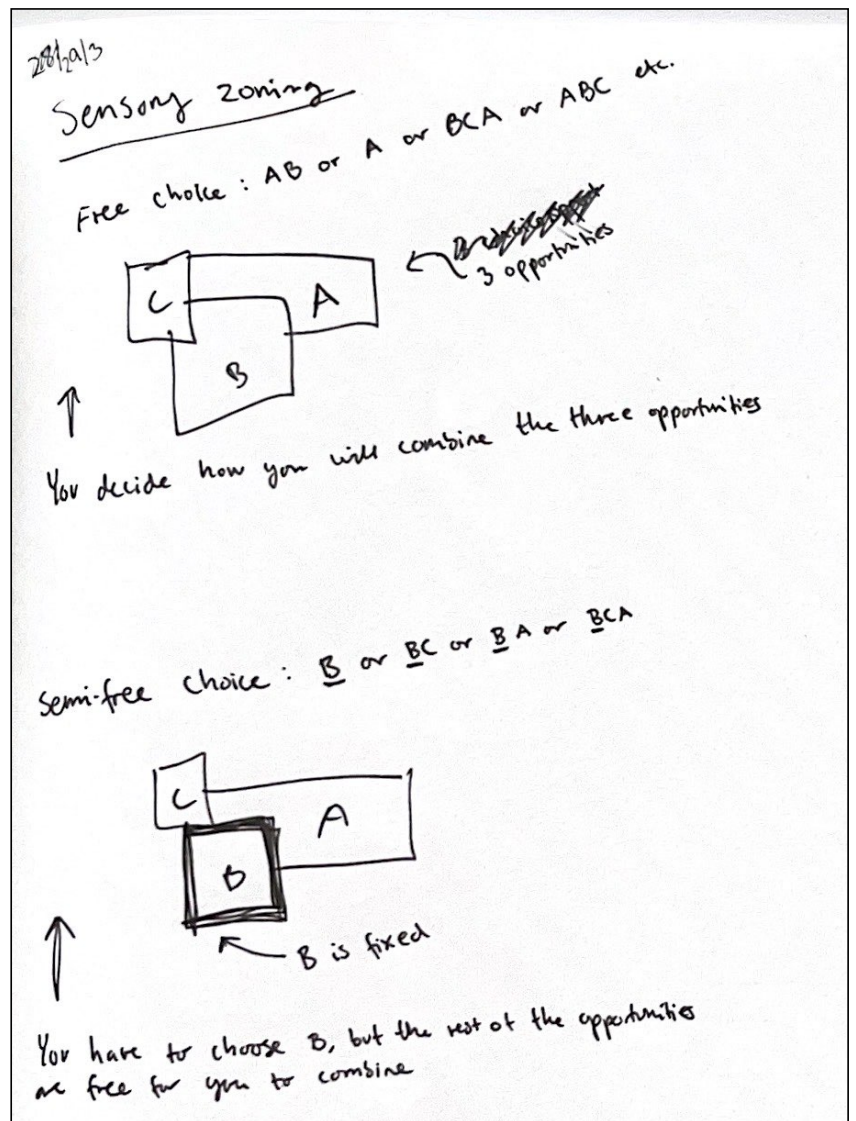 Sensory zoning
Free choice: AB or A or BCA or ABC etc.
3 opportunities
C
A
B
You decide how you will combine the three opportunities
Semi-free choice: B or BC or BA or BCA
C
A
B
B is fixed
You have to choose B, but the rest of the opportunities
are free for you to combine